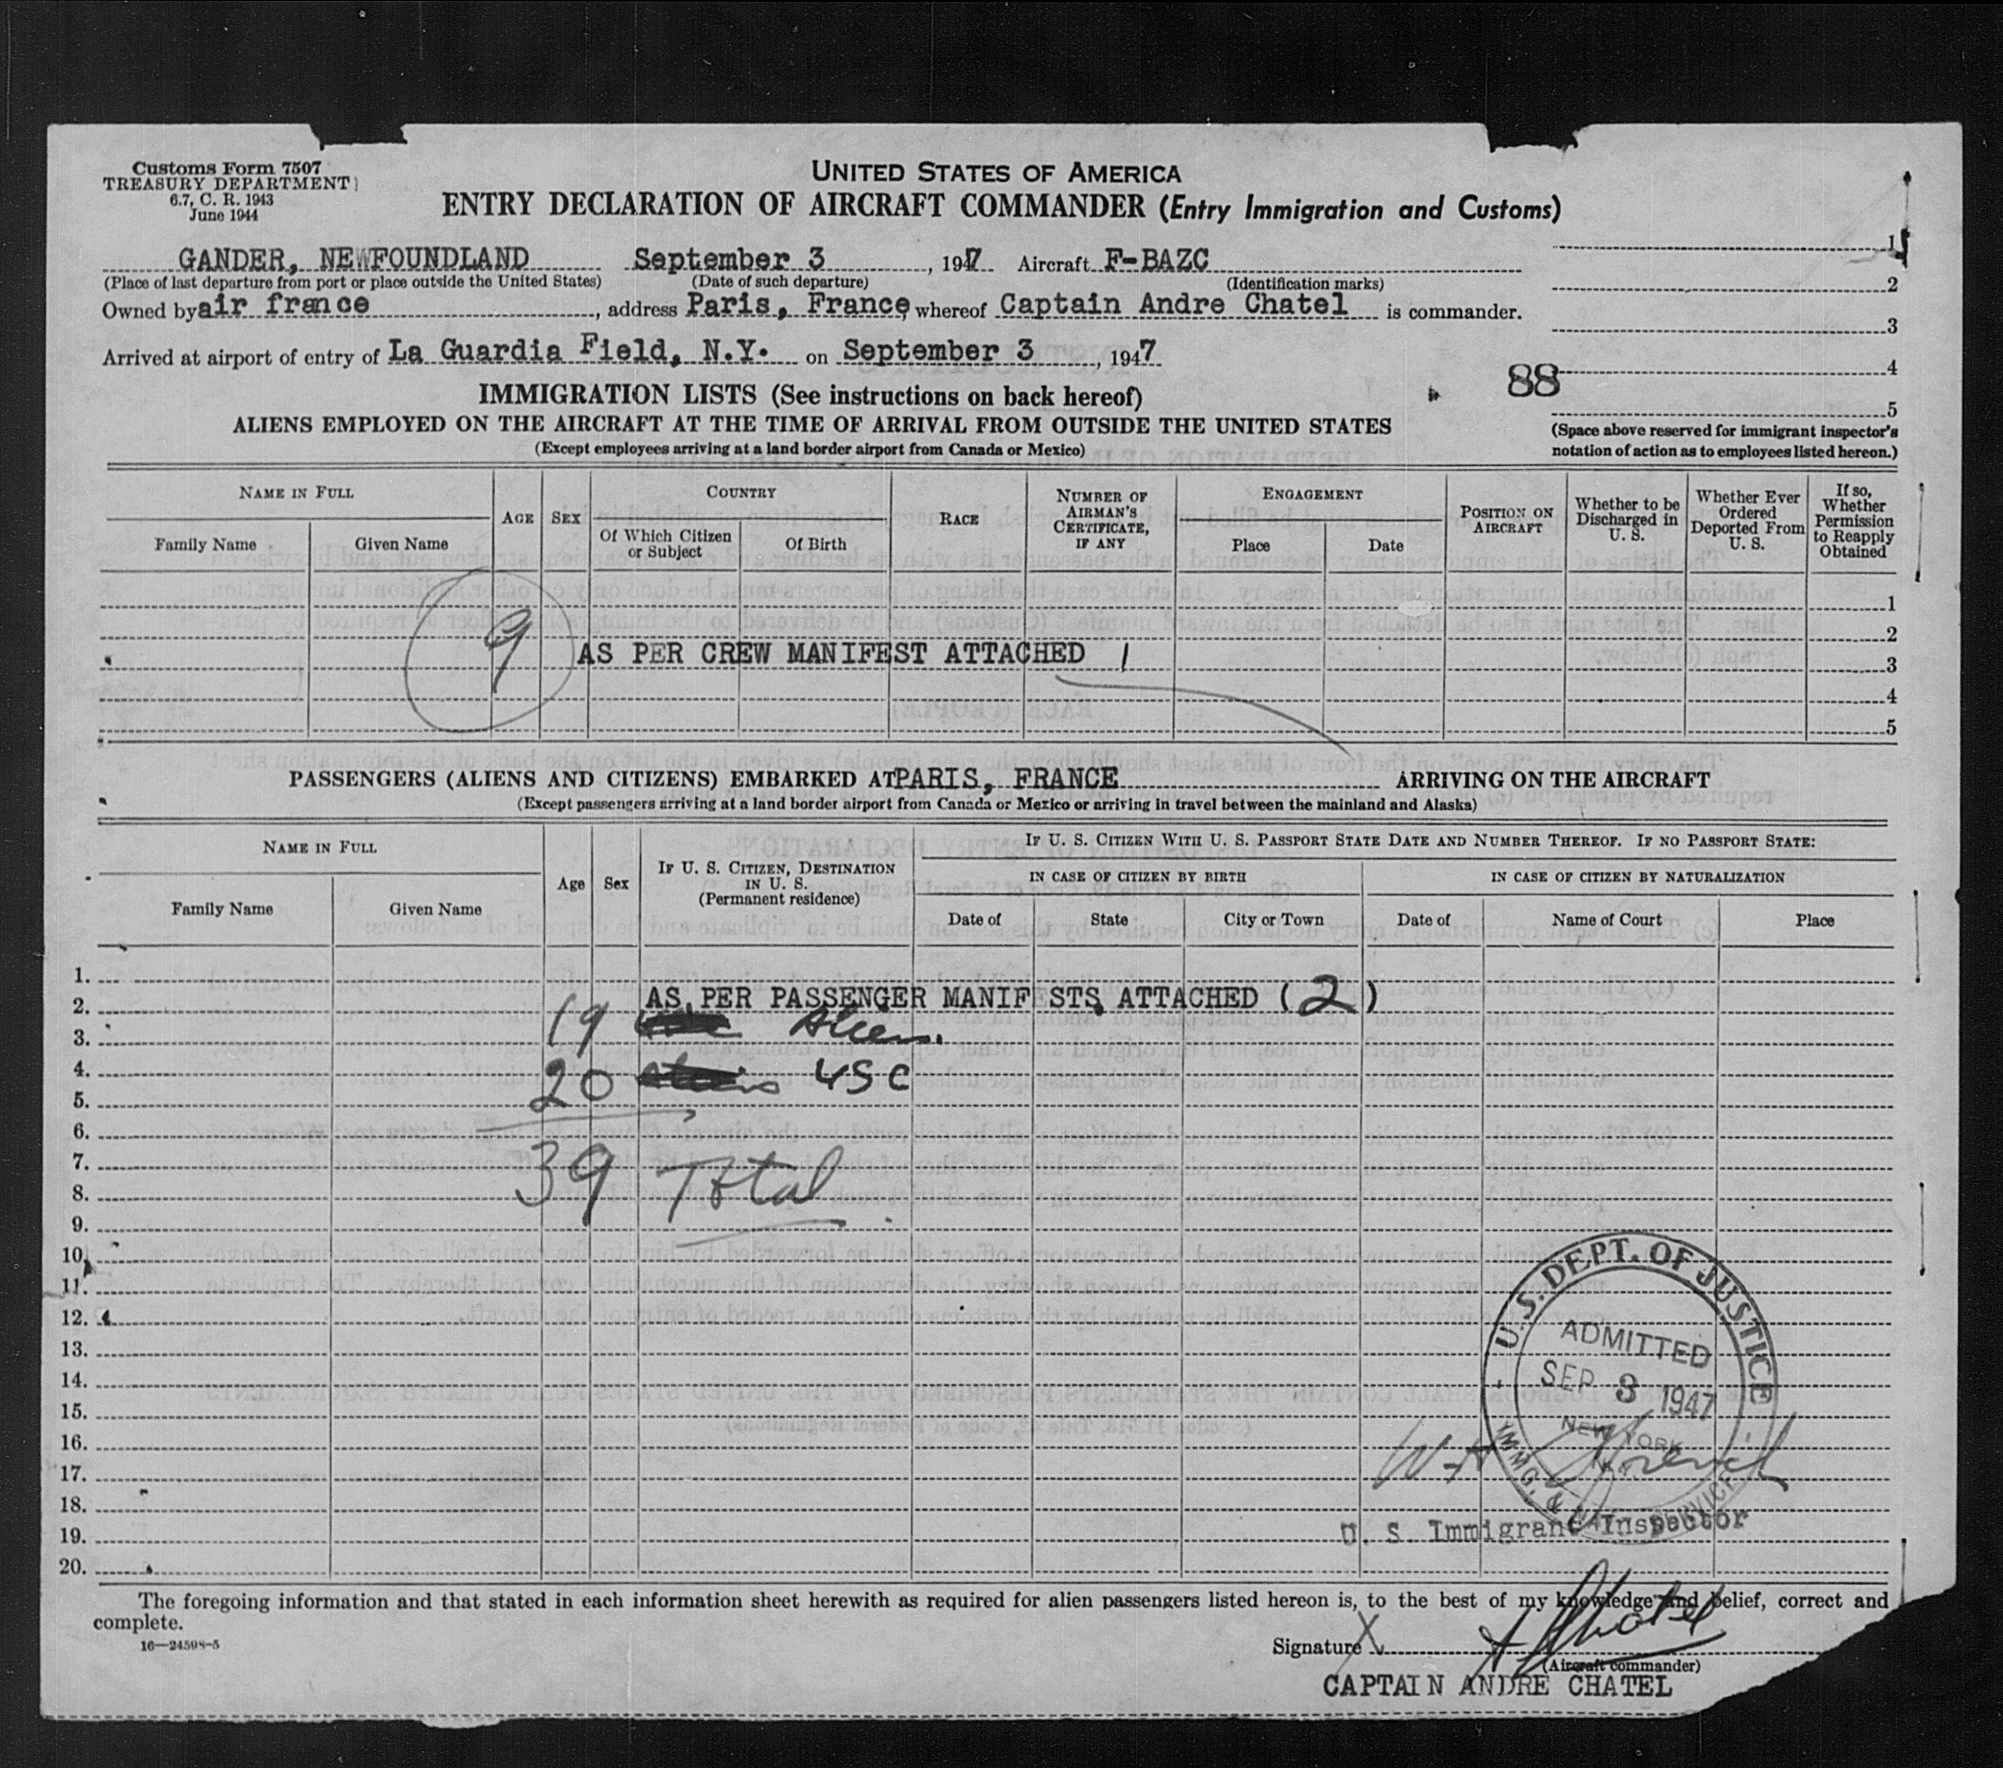 Customs Form 7507
TREASURY DEPARTMENT
6.7, C. R. 1943
June 1944
UNITED STATES OF AMERICA
ENTRY DECLARATION OF AIRCRAFT COMMANDER (Entry Immigration and Customs)
GANDER, NEWFOUNDLAND September 3, 1947 Aircraft F-BAZC
(Place of last departure from port or place outside the United States) (Date of such departure) (Identification marks)
Owned by air france, address Paris, France, whereof Captain Andre Chatel is commander.
Arrived at airport of entry of La Guardia Field, N.Y. on September 3, 1947
1
2
3
4
5
88
(Space above reserved for immigrant inspector's
notation of action as to employees listed hereon.)
IMMIGRATION LISTS (See instructions on back hereof)
ALIENS EMPLOYED ON THE AIRCRAFT AT THE TIME OF ARRIVAL FROM OUTSIDE THE UNITED STATES
(Except employees arriving at a land border airport from Canada or Mexico)
NAME IN FULL
Family Name
Given Name
AGE
SEX
COUNTRY
Of Which Citizen
or Subject
Of Birth
RACE
NUMBER OF
AIRMAN'S
CERTIFICATE,
IF ANY
ENGAGEMENT
Place
Date
POSITION ON
AIRCRAFT
Whether to be
Discharged in
U. S.
Whether Ever
Ordered
Deported From
U. S.
If so,
Whether
Permission
to Reapply
Obtained
1
2
9 AS PER CREW MANIFEST ATTACHED 1
3
4
5
PASSENGERS (ALIENS AND CITIZENS) EMBARKED AT PARIS, FRANCE ARRIVING ON THE AIRCRAFT
(Except passengers arriving at a land border airport from Canada or Mexico or arriving in travel between the mainland and Alaska)
NAME IN FULL
Family Name
Given Name
Age
Sex
IF U. S. CITIZEN, DESTINATION
IN U. S.
(Permanent residence)
IF U. S. CITIZEN WITH U. S. PASSPORT STATE DATE AND NUMBER THEREOF. IF NO PASSPORT STATE:
IN CASE OF CITIZEN BY BIRTH
Date of
State
City or Town
IN CASE OF CITIZEN BY NATURALIZATION
Date of
Name of Court
Place
1.
2. AS PER PASSENGER MANIFESTS ATTACHED (2)
3. 19 Aliens.
4. 20 USC
5.
6.
7.
8. 39 Total
9.
10.
11.
12.
13.
14.
15.
16.
17.
18.
19.
20.
U.S. DEPT. OF JUSTICE
ADMITTED
SEP 3 1947
NEW YORK
IMMG. & NAT. SERVICE
U. S. Immigrant Inspector
The foregoing information and that stated in each information sheet herewith as required for alien passengers listed hereon is, to the best of my knowledge and belief, correct and
complete.
16—24598-5
Signature X A Chatel
(Aircraft commander)
CAPTAIN ANDRE CHATEL